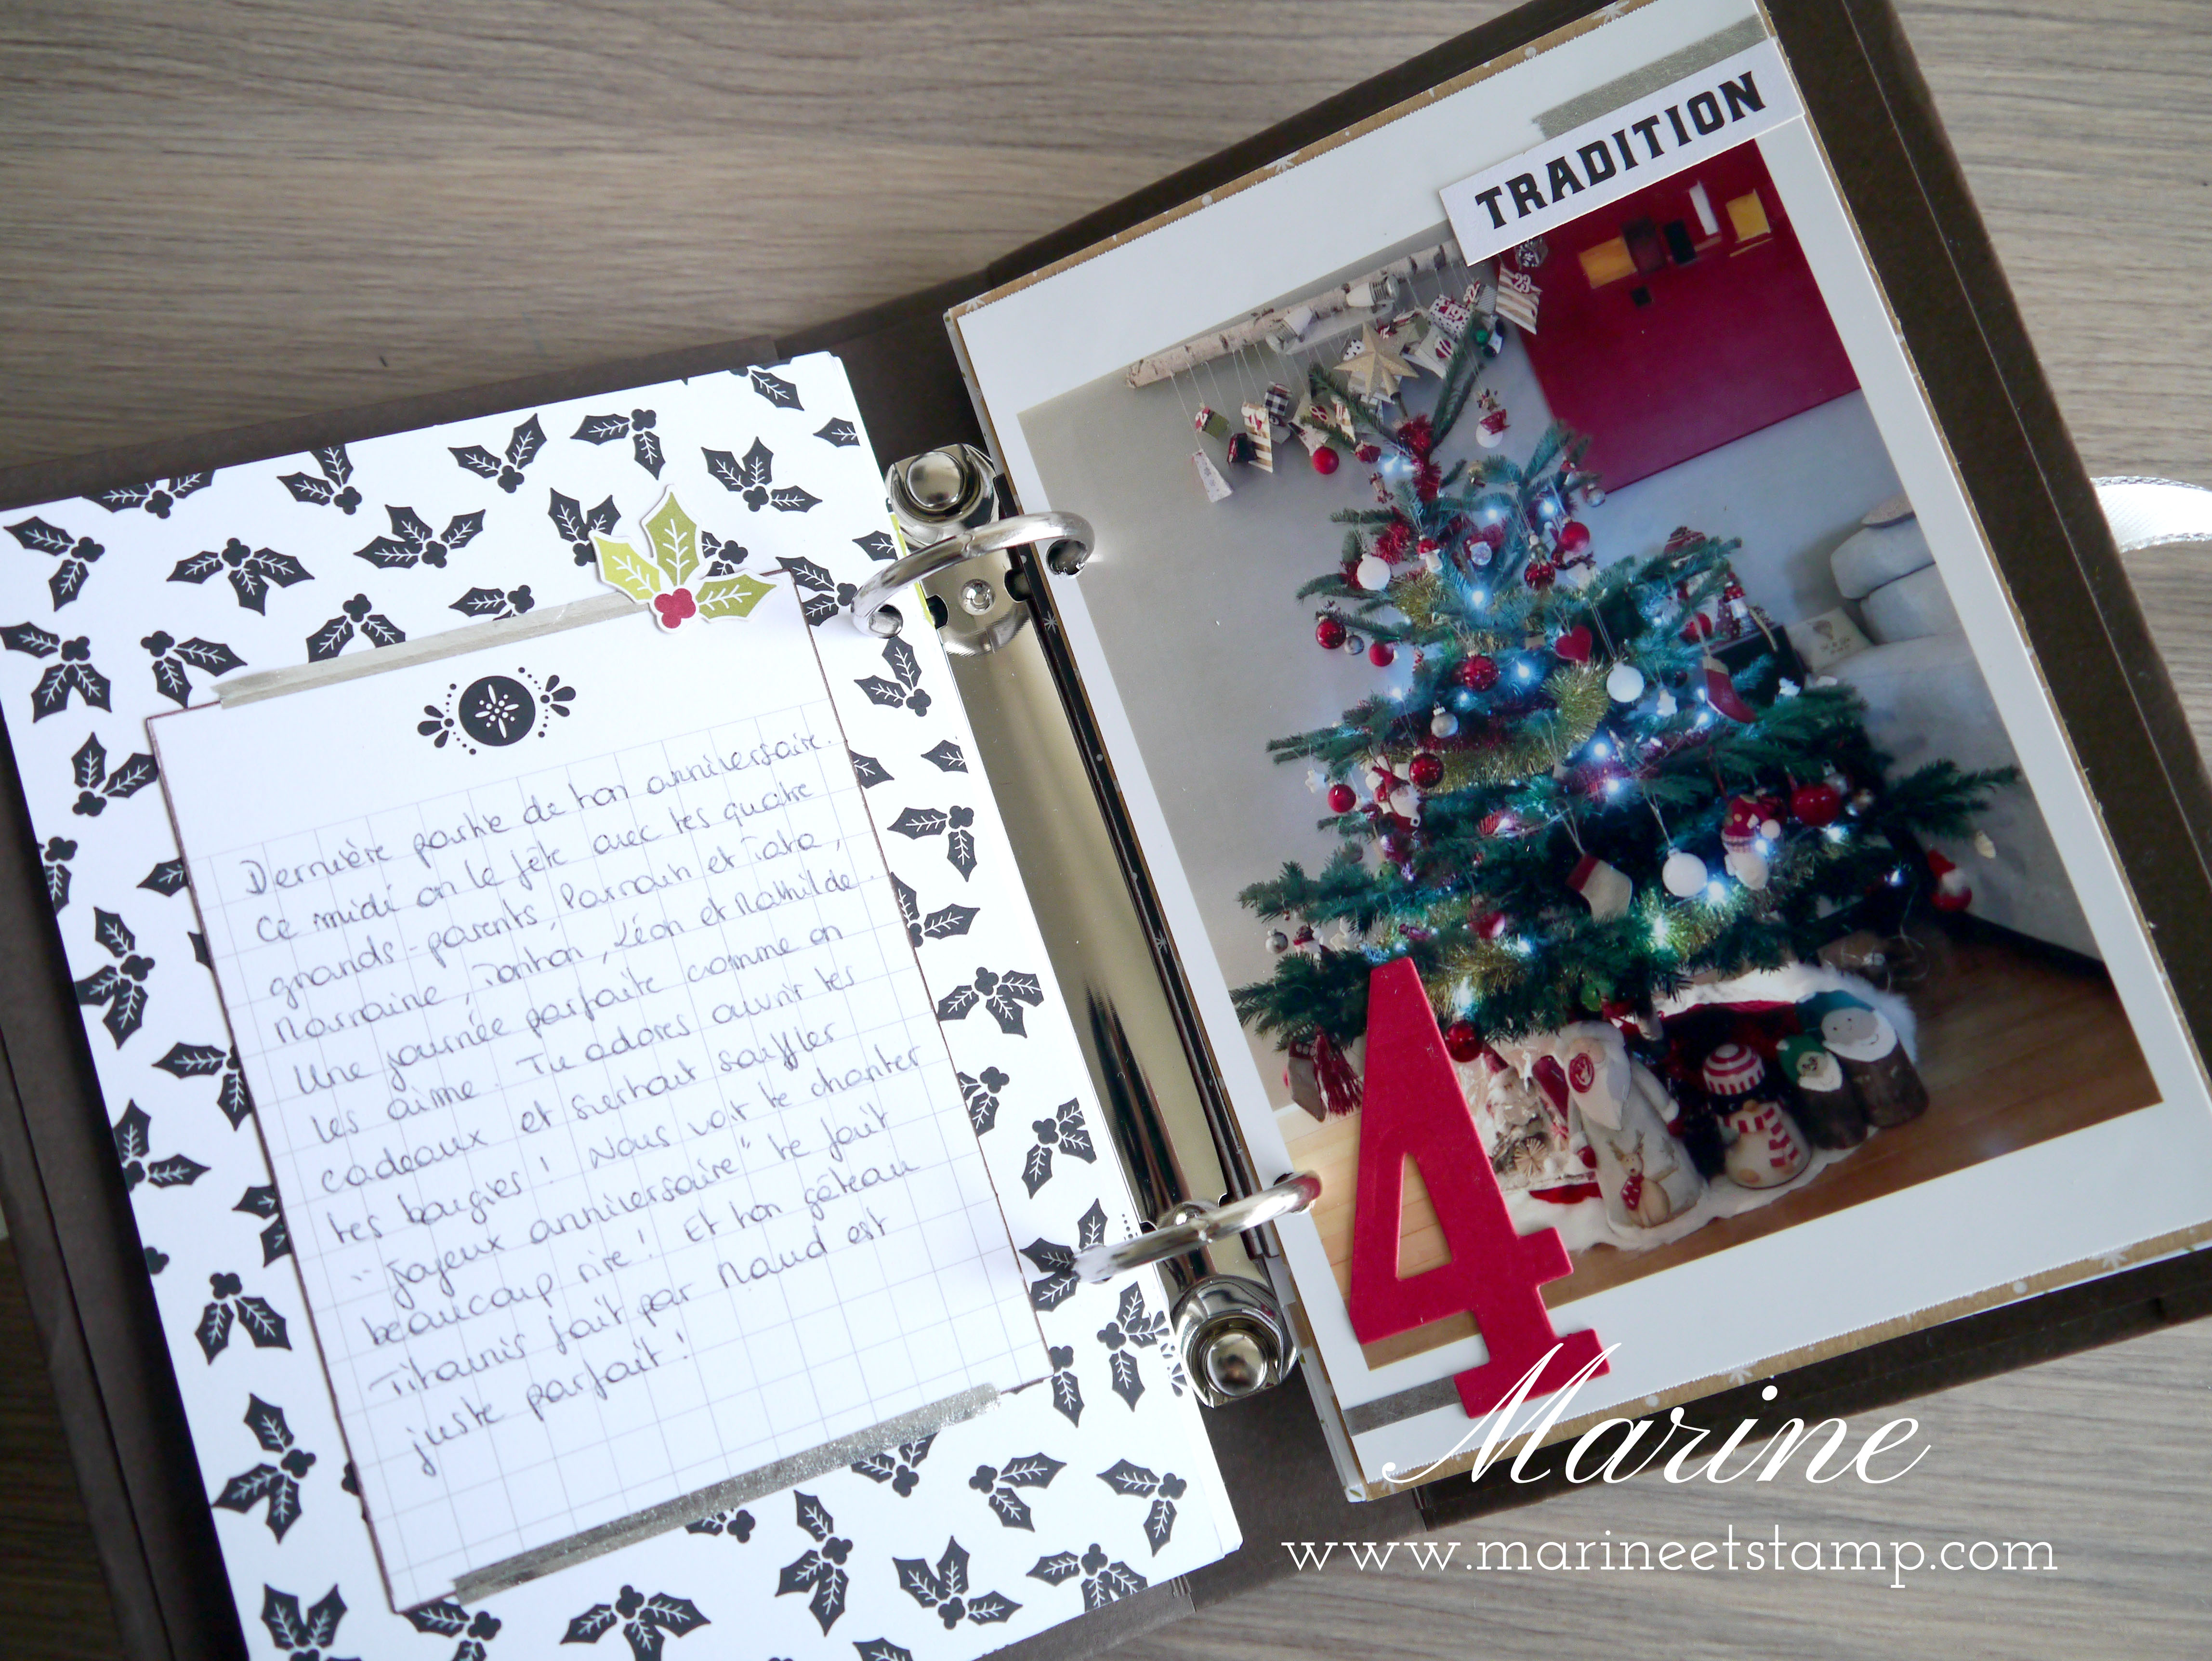 Dernière partie de ton anniversaire.
Ce midi on le fête avec tes quatre
grands-parents, Parrain et Tata,
Marraine, Tonton, Léon et Mathilde.
Une journée parfaite comme on
les aime. Tu adores ouvrir tes
cadeaux et surtout souffler
tes bougies ! Nous voir te chanter
"joyeux anniversaire" te fait
beaucoup rire ! Et ton gâteau
Titanic fait par Maud est
juste parfait !
TRADITION
23
4
Marine
www.marineetstamp.com